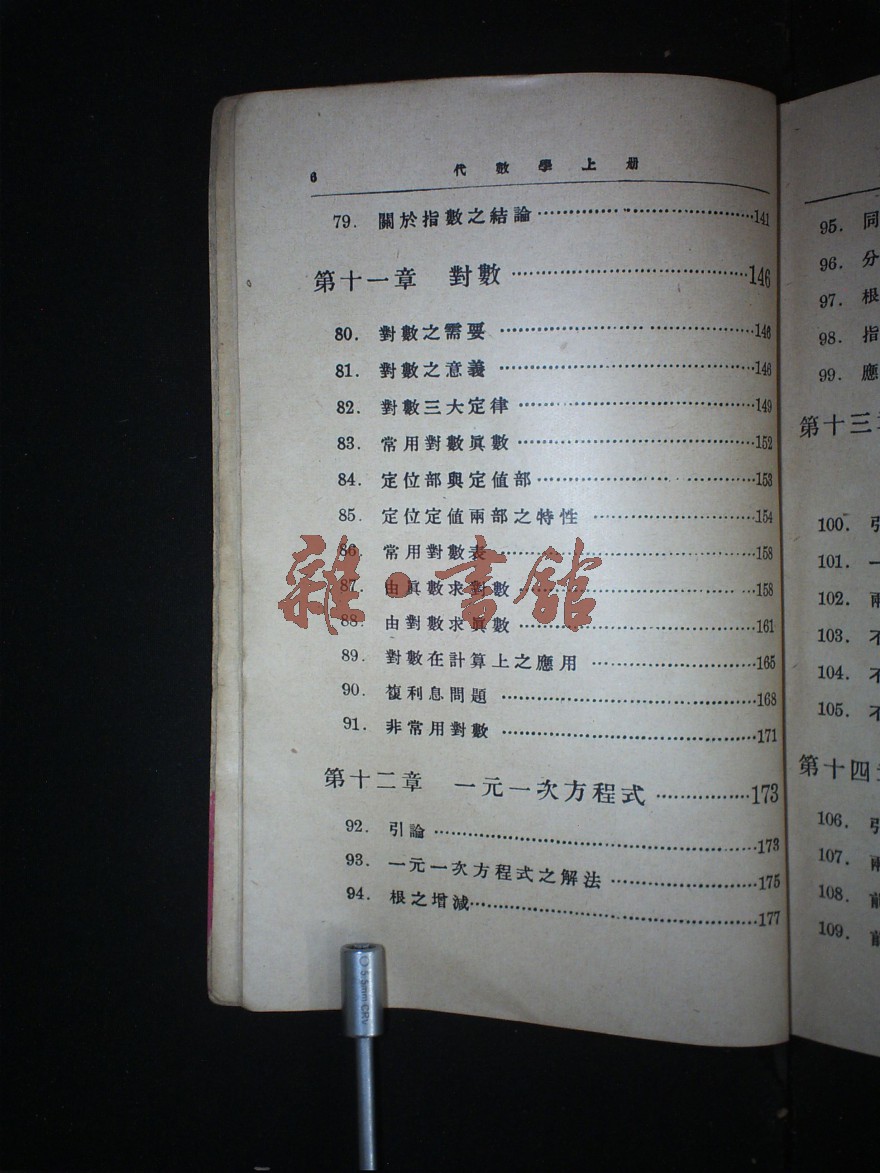 6 代數學上册
79. 關於指數之結論 141
第十一章 對數 146
80. 對數之需要 146
81. 對數之意義 146
82. 對數三大定律 149
83. 常用對數眞數 152
84. 定位部與定值部 153
85. 定位定值兩部之特性 154
86. 常用對數表 158
87. 由眞數求對數 158
88. 由對數求眞數 161
89. 對數在計算上之應用 165
90. 複利息問題 168
91. 非常用對數 171
第十二章 一元一次方程式 173
92. 引論 173
93. 一元一次方程式之解法 175
94. 根之增減 177
雜·書館
5.5mm CRV
95. 同
96. 分
97. 根
98. 指
99. 應
第十三
100. 引
101. 一
102. 兩
103. 不
104. 不
105. 不
第十四
106. 引
107. 兩
108. 前
109. 前